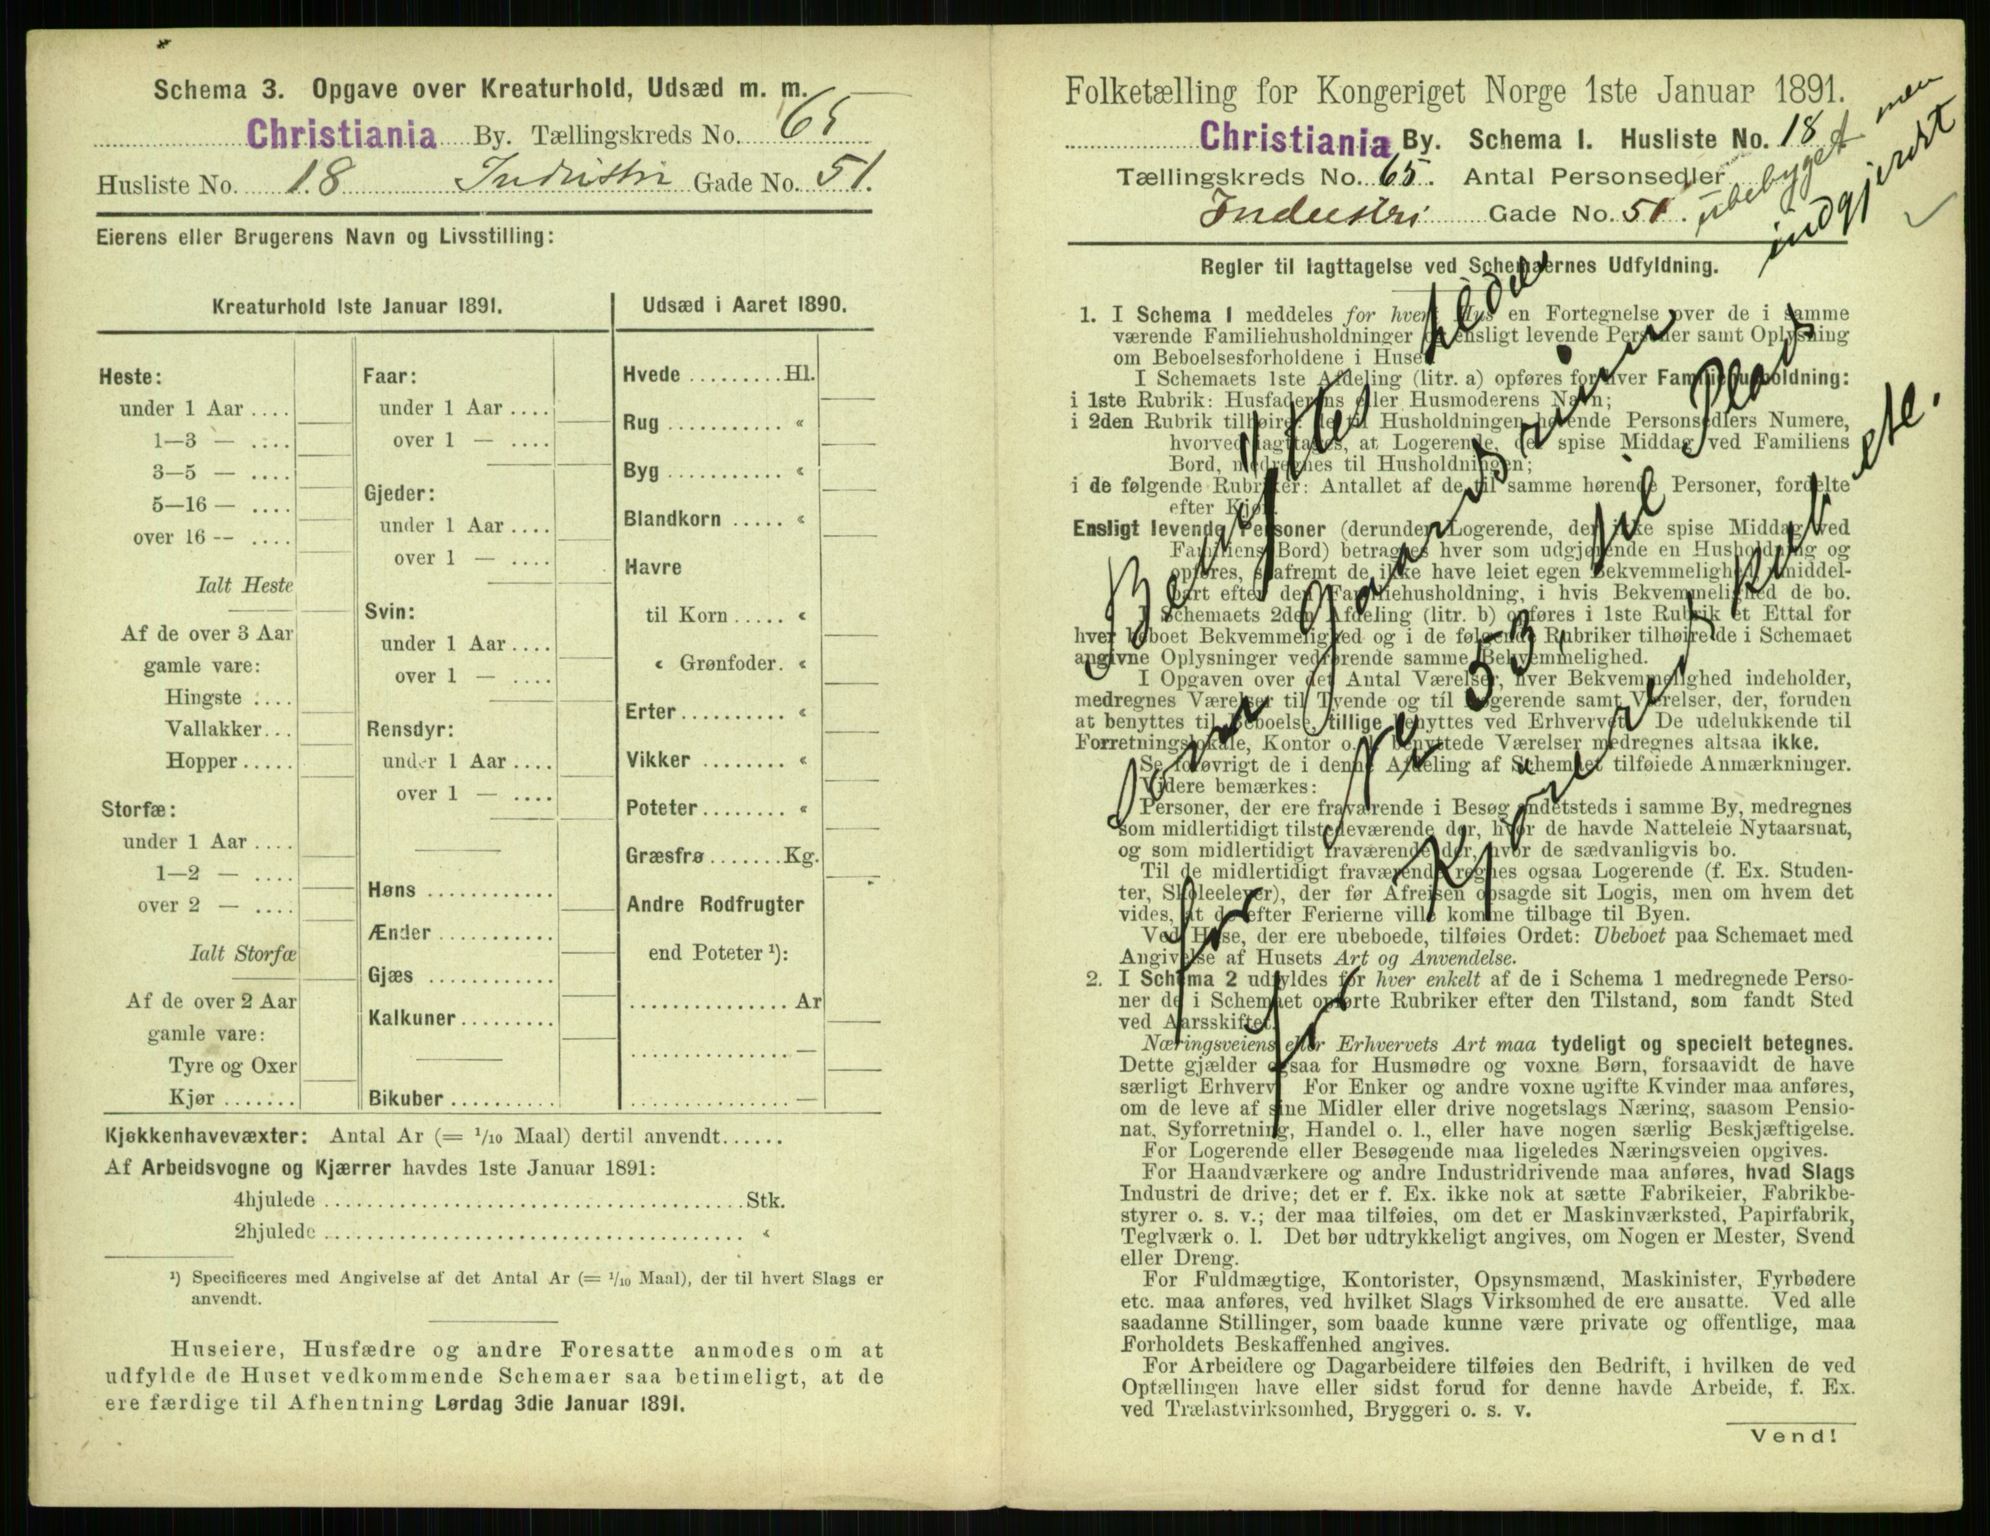 Schema 3. Opgave over Kreaturhold, Udsæd m. m.
Christiania By. Tællingskreds No. 65
Husliste No. 18 Industri Gade No. 51.
Eierens eller Brugerens Navn og Livsstilling:
Kreaturhold 1ste Januar 1891.
Heste:
under 1 Aar ....
1—3 — ....
3—5 — ....
5—16 — ....
over 16 -- ....
Ialt Heste
Af de over 3 Aar
gamle vare:
Hingste ....
Vallakker...
Hopper .....
Storfæ:
under 1 Aar ....
1—2 — ....
over 2 — ....
Ialt Storfæ
Af de over 2 Aar
gamle vare:
Tyre og Oxer
Kjør .......
Faar:
under 1 Aar ....
over 1 — ....
Gjeder:
under 1 Aar ....
over 1 — ....
Svin:
under 1 Aar ....
over 1 — ....
Rensdyr:
under 1 Aar ....
over 1 — ....
Høns ............
Ænder ...........
Gjæs ............
Kalkuner.........
Bikuber ..........
Udsæd i Aaret 1890.
Hvede .........Hl.
Rug ........... «
Byg ........... «
Blandkorn ..... «
Havre
til Korn ..... «
« Grønfoder. «
Erter.......... «
Vikker ........ «
Poteter........ «
Græsfrø .......Kg.
Andre Rodfrugter
end Poteter ¹):
............... Ar
............... —
............... —
Kjøkkenhavevæxter: Antal Ar (= 1/10 Maal) dertil anvendt......
Af Arbeidsvogne og Kjærrer havdes 1ste Januar 1891:
4hjulede ....................................... Stk.
2hjulede ....................................... «
¹) Specificeres med Angivelse af det Antal Ar (= 1/10 Maal), der til hvert Slags er
anvendt.
Huseiere, Husfædre og andre Foresatte anmodes om at
udfylde de Huset vedkommende Schemaer saa betimeligt, at de
ere færdige til Afhentning Lørdag 3die Januar 1891.
Folketælling for Kongeriget Norge 1ste Januar 1891.
Christiania By. Schema I. Husliste No. 18
Tællingskreds No. 65. Antal Personsedler
Industri Gade No. 51.
ubebyget men
indgjerdet
Regler til Iagttagelse ved Schemaernes Udfyldning.
1. I Schema 1 meddeles for hvert Hus en Fortegnelse over de i samme
værende Familiehusholdninger og ensligt levende Personer samt Oplysning
om Beboelsesforholdene i Huset.
I Schemaets 1ste Afdeling (litr. a) opføres for hver Familiehusholdning:
i 1ste Rubrik: Husfaderens eller Husmoderens Navn;
i 2den Rubrik tilhøire: de til Husholdningen hørende Personsedlers Numere,
hvorved iagttages, at Logerende, der spise Middag ved Familiens
Bord, medregnes til Husholdningen;
i de følgende Rubriker: Antallet af de til samme hørende Personer, fordelte
efter Kjøn.
Ensligt levende Personer (derunder Logerende, der ikke spise Middag ved
Familiens Bord) betragtes hver som udgjørende en Husholdning og
opføres, saafremt de ikke have leiet egen Bekvemmelighed umiddel-
bart efter den Familiehusholdning, i hvis Bekvemmelighed de bo.
I Schemaets 2den Afdeling (litr. b) opføres i 1ste Rubrik et Ettal for
hver beboet Bekvemmelighed og i de følgende Rubriker tilhøire de i Schemaet
angivne Oplysninger vedrørende samme Bekvemmelighed.
I Opgaven over det Antal Værelser, hver Bekvemmelighed indeholder,
medregnes Værelser til Tyende og til Logerende samt Værelser, der, foruden
at benyttes til Beboelse, tillige benyttes ved Erhvervet. De udelukkende til
Forretningslokale, Kontor o. l. benyttede Værelser medregnes altsaa ikke.
Se forøvrigt de i denne Afdeling af Schemaet tilføiede Anmærkninger.
Videre bemærkes:
Personer, der ere fraværende i Besøg andetsteds i samme By, medregnes
som midlertidigt tilstedeværende der, hvor de havde Natteleie Nytaarsnat,
og som midlertidigt fraværende der, hvor de sædvanligvis bo.
Til de midlertidigt fraværende regnes ogsaa Logerende (f. Ex. Studen-
ter, Skoleelever), der før Afreisen opsagde sit Logis, men om hvem det
vides, at de efter Ferierne ville komme tilbage til Byen.
Ved Huse, der ere ubeboede, tilføies Ordet: Ubeboet paa Schemaet med
Angivelse af Husets Art og Anvendelse.
2. I Schema 2 udfyldes for hver enkelt af de i Schema 1 medregnede Perso-
ner de i Schemaet opførte Rubriker efter den Tilstand, som fandt Sted
ved Aarsskiftet.
Næringsveiens eller Erhvervets Art maa tydeligt og specielt betegnes.
Dette gjælder ogsaa for Husmødre og voxne Børn, forsaavidt de have
særligt Erhverv. For Enker og andre voxne ugifte Kvinder maa anføres,
om de leve af sine Midler eller drive nogetslags Næring, saasom Pensio-
nat, Syforretning, Handel o. l., eller have nogen særlig Beskjæftigelse.
For Logerende eller Besøgende maa ligeledes Næringsveien opgives.
For Haandværkere og andre Industridrivende maa anføres, hvad Slags
Industri de drive; det er f. Ex. ikke nok at sætte Fabrikeier, Fabrikbe-
styrer o. s. v.; der maa tilføies, om det er Maskinværksted, Papirfabrik,
Teglværk o. l. Det bør udtrykkeligt angives, om Nogen er Mester, Svend
eller Dreng.
For Fuldmægtige, Kontorister, Opsynsmænd, Maskinister, Fyrbødere
etc. maa anføres, ved hvilket Slags Virksomhed de ere ansatte. Ved alle
saadanne Stillinger, som baade kunne være private og offentlige, maa
Forholdets Beskaffenhed angives.
For Arbeidere og Dagarbeidere tilføies den Bedrift, i hvilken de ved
Optællingen have eller sidst forud for denne havde Arbeide, f. Ex.
ved Trælastvirksomhed, Bryggeri o. s. v.
Vend!
Benyttes
som Gaardsrum
for No 53, til Plads
for Kjøretøi